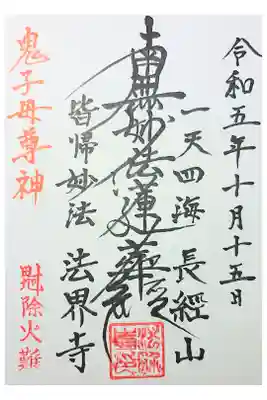 令和五年十月十五日
一天四海 長經山
南無妙法蓮華経
皆帰妙法 法界寺
鬼子母尊神
除火難